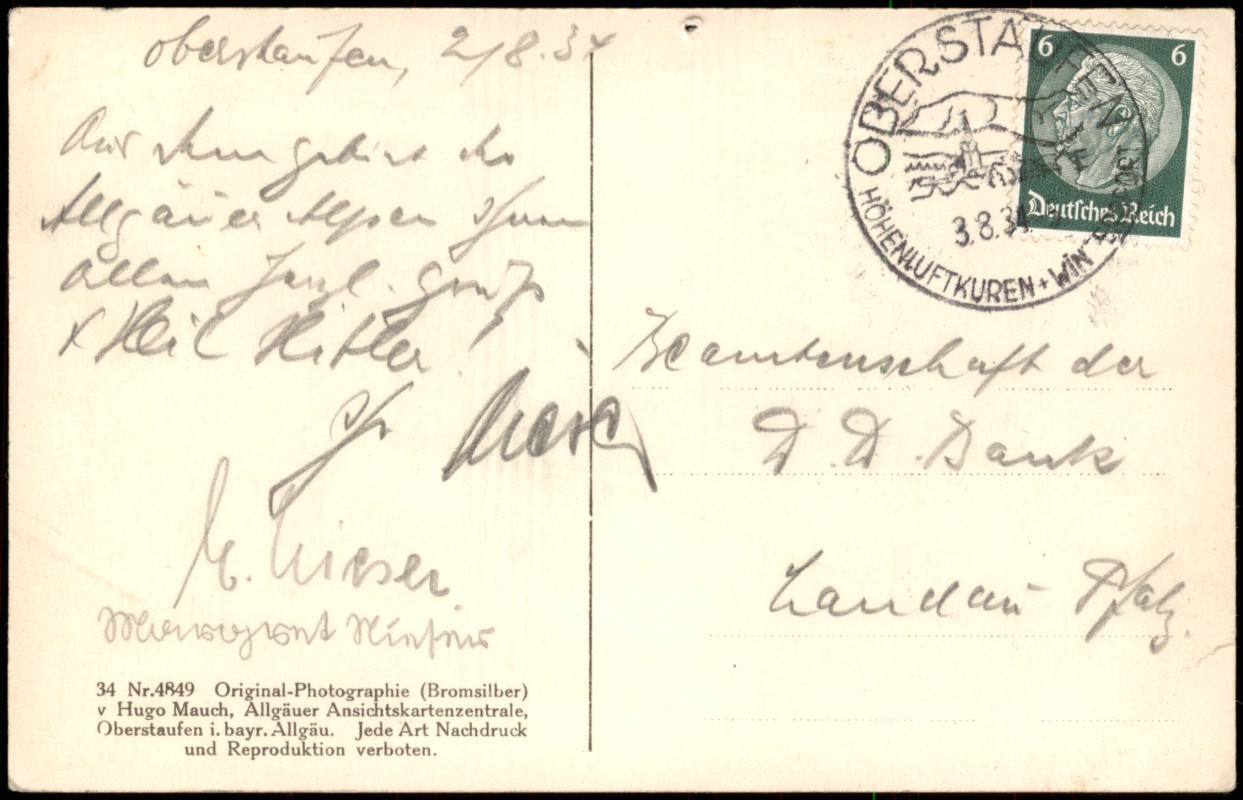 Oberstaufen, 2/8.34
Aus dem gebiet der
Allgäuer Alpen
allen herzl. Grüße
x Heil Hitler!
M. Nieser
Margret Nieser
34 Nr.4849 Original-Photographie (Bromsilber)
v Hugo Mauch, Allgäuer Ansichtskartenzentrale,
Oberstaufen i. bayr. Allgäu. Jede Art Nachdruck
und Reproduktion verboten.
OBERSTAUFEN
3.8.34
HÖHENLUFTKUREN + WINTERSPORT
6 6
Deutsches Reich
Beamtenschaft der
D. D. Bank
Landau Pfalz.